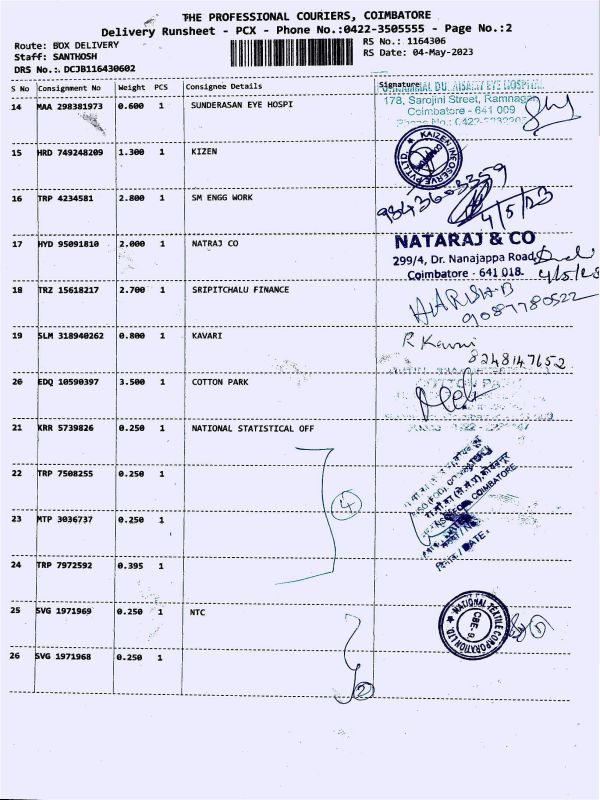 THE PROFESSIONAL COURIERS, COIMBATORE
Delivery Runsheet - PCX - Phone No.:0422-3505555 - Page No.:2
Route: BOX DELIVERY
RS No.: 1164306
Staff: SANTHOSH
RS Date: 04-May-2023
DRS No.: DCJB116430602
S No Consignment No Weight PCS Consignee Details Signature
14 MAA 298381973 0.600 1 SUNDERASAN EYE HOSPI
178, Sarojini Street, Ramnagar
Coimbatore - 641 009
15 HRD 749248209 1.300 1 KIZEN
KAIZEN INFOSERVE PVT LTD
16 TRP 4234581 2.800 1 SM ENGG WORK
4/5/23
17 HYD 95091810 2.000 1 NATRAJ CO
NATARAJ & CO
299/4, Dr. Nanajappa Road
Coimbatore - 641 018.
4/5/23
18 TRZ 15618217 2.700 1 SRIPITCHALU FINANCE
HARISH B
9087780522
19 SLM 318940262 0.800 1 KAVARI
R Kavari
8248147652
20 EDQ 10590397 3.500 1 COTTON PARK
21 KRR 5739826 0.250 1 NATIONAL STATISTICAL OFF
22 TRP 7508255 0.250 1
4
23 MTP 3036737 0.250 1
24 TRP 7972592 0.395 1
25 SVG 1971969 0.250 1 NTC
NATIONAL TEXTILE CORPORATION LTD.
CBE. 9
1
26 SVG 1971968 0.250 1
2